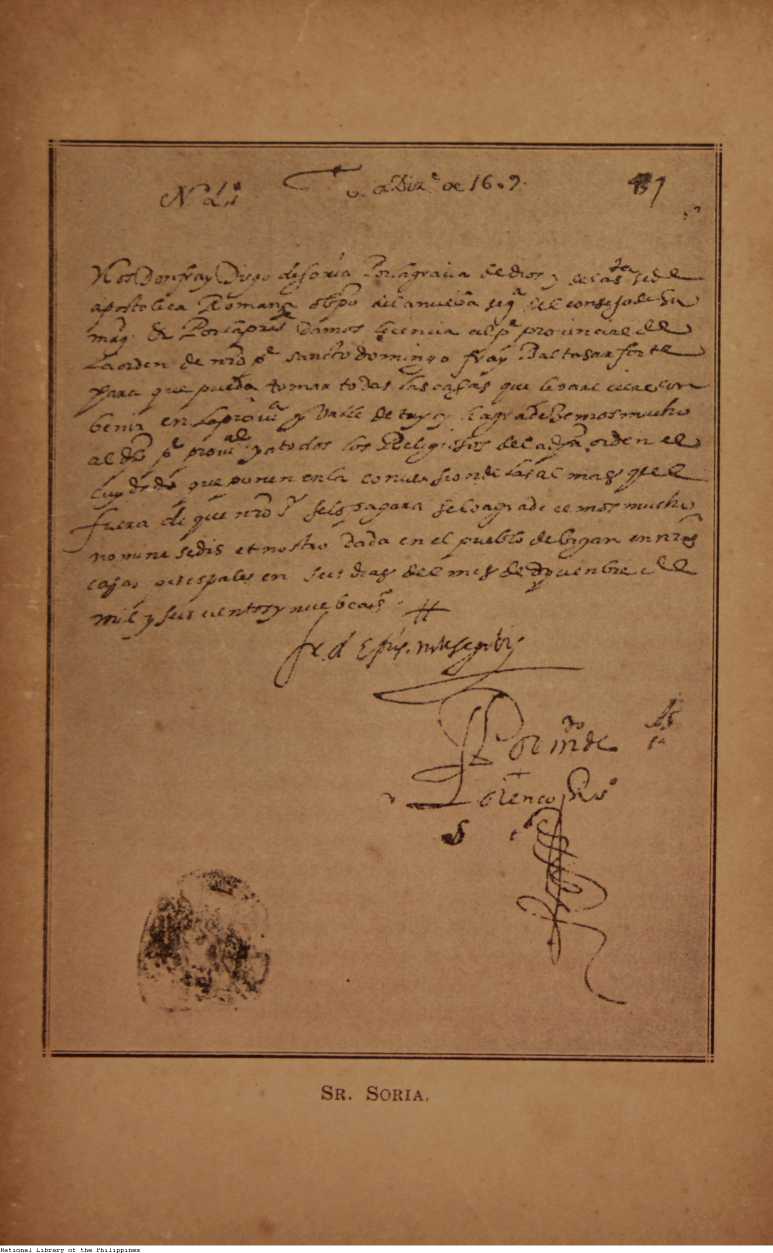 de 1609
Nos Don fray Diego de Soria Por la graçia de dios y de la s.ta sede
apostolica Romana obpo de la nueba seg.a del consejo de Su
mag. & Por la pres.te Damos liçencia al p.e provincial de
La orden de nr̃o p.e sancto domingo fray Baltasar forte
para que pueda tomar todas las casas que le paresciere con
benir en la provi.a y Valle de tuy y le agradecemos mucho
al dho p.e provi.al y a todos los Religiosos de la dha orden el
cuydado que ponen en la conversion de las almas que
fuera de que nr̃o s.r se los pagara se lo agradecemos mucho
nomine sedis et nostro Dada en el pueblo de bigan en nr̃as
casas obispales en seis dias del mes de de
mil y seiscientos y nuebe años
fr. d. Epũs. novae segobi.
Por m.do de
Lorenço
SR. SORIA.
National Library of the Philippines